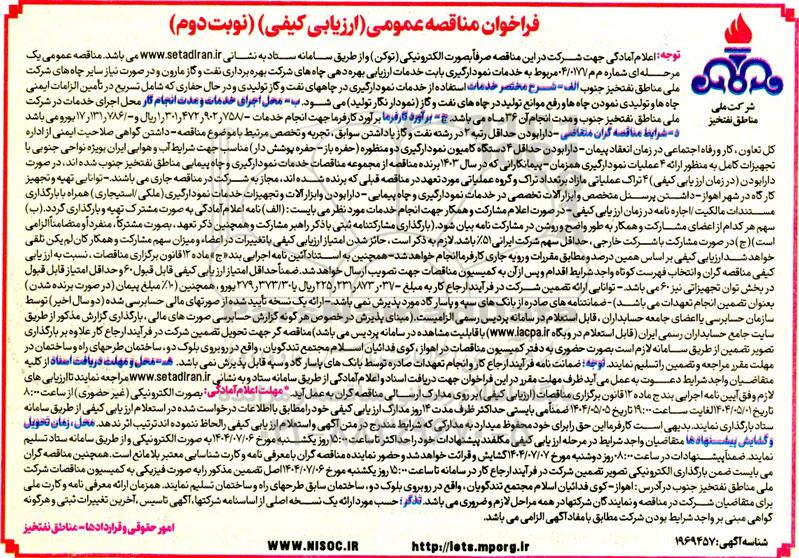 فراخوان مناقصه عمومی (ارزیابی کیفی) (نوبت دوم)
شرکت ملی
مناطق نفتخیز
توجه: اعلام آمادگی جهت شرکت در این مناقصه صرفاً بصورت الکترونیکی (توکن) و از طریق سامانه ستاد به نشانی www.setadIran.ir می باشد. مناقصه عمومی یک
مرحله ای شماره م م/۰۴/۰۱۷۷ مربوط به خدمات نمودارگیری بابت خدمات ارزیابی بهره دهی چاه های شرکت بهره برداری نفت و گاز مارون و در صورت نیاز سایر چاه های شرکت
ملی مناطق نفتخیز جنوب الف- شرح مختصر خدمات استفاده از خدمات نمودارگیری در چاههای نفت و گاز تولیدی و در حال حفاری که شامل تسریع در تأمین الزامات ایمنی
چاه ها و تولیدی نمودن چاه ها و رفع موانع تولید در چاه های نفت و گاز (نمودار نگار تولید) می شود. ب- محل اجرای خدمات و مدت انجام کار محل اجرای خدمات در شرکت
ملی مناطق نفتخیز جنوب و مدت انجام آن ۲۴ ماه می باشد. ج- برآورد کارفرما برآورد کارفرما جهت انجام خدمات
د- شرایط مناقصه گران متقاضی - دارا بودن حداقل رتبه ۲ در رشته نفت و گاز یا داشتن سوابق، تجربه و تخصص مرتبط با موضوع مناقصه - داشتن گواهی صلاحیت ایمنی از اداره
کل تعاون، کار و رفاه اجتماعی در زمان انعقاد پیمان - دارا بودن حداقل ۴ دستگاه کامیون نمودارگیری و منظوره (حفره باز - حفره پوش دار) مناسب شرایط آب و هوایی ایران بویژه نواحی جنوبی با
تجهیزات کامل به منظور ارائه ۴ عملیات نمودارگیری همزمان - پیمانکارانی که در سال ۱۴۰۳ برنده مناقصه از مجموعه مناقصات خدمات نمودارگیری و چاه پیمایی مناطق نفتخیز جنوب شده اند، در صورت
دارا بودن (در زمان ارزیابی کیفی) ۴ تراک عملیاتی مازاد بر تعداد تراک و گروه عملیاتی مورد تعهد در مناقصه قبلی که برنده شده اند، مجاز به شرکت در مناقصه جاری می باشند. - توانایی تهیه و تجهیز
کارگاه در شهر اهواز - داشتن پرسنل متخصص و ابزار آلات تخصصی در خدمات نمودارگیری و چاه پیمایی - دارا بودن وابزار آلات و تجهیزات خدمات نمودارگیری (ملکی/استیجاری) همراه با بارگذاری
مستندات مالکیت/اجاره نامه در زمان ارزیابی کیفی - در صورت اعلام مشارکت و همکار جهت انجام خدمات مورد نظر می بایست: (الف) نامه اعلام آمادگی به صورت مشترک تهیه و بارگذاری گردد. (ب)
سهم هر کدام از اعضای مشارکت و همکار به طور واضح و روشن در مشارکت نامه بیان شود. (بارگذاری مشارکتنامه ثبتی با ذکر راهبر مشارکت و همچنین ذکر تعهد، بصورت مشترکاً، منفرداً و متضامناً الزامی
است) (ج) در صورت مشارکت با شرکت خارجی، حداقل سهم شرکت ایرانی ۵۱٪ باشد. لازم به ذکر است، حائز شدن امتیاز ارزیابی کیفی با تغییرات در اعضاء و میزان سهم مشارکت و همکار کان لم یکن تلقی
خواهد شد. ارزیابی کیفی بر اساس همین درصد و مطابق مقررات و رویه جاری کارفرما انجام خواهد شد - همچنین به استناد آئین نامه اجرایی بند ج ماده ۱۲ قانون برگزاری مناقصات، نسبت به ارزیابی
کیفی مناقصه گران و انتخاب فهرست کوتاه واجد شرایط اقدام و پس از آن به کمیسیون مناقصات جهت تصویب ارسال خواهد شد. ضمناً حداقل امتیاز ارزیابی کیفی قابل قبول ۶۰ و حداقل امتیاز قابل قبول
در بخش توان تجهیزاتی نیز ۶۰ می باشد. - توانایی ارائه تضمین شرکت در فرآیند ارجاع کار به مبلغ
بعنوان تضمین انجام تعهدات می باشد) - ضمانتنامه های صادره از بانک های سپه و پاسارگاد مورد پذیرش نمی باشد. - ارائه یک نسخه تأیید شده از صورتهای مالی حسابرسی شده (دو سال اخیر) توسط
سازمان حسابرسی یا اعضای جامعه حسابداران، قابل استعلام در سامانه پردیس رسمی الزامیست. (مبنای پذیرش در خصوص هر گونه گزارش حسابرسی صورت های مالی، بارگذاری گزارش مذکور از طریق
سایت جامع حسابداران رسمی ایران (قابل استعلام در وبگاه www.iacpa.ir) با قابلیت مشاهده در سامانه پردیس می باشد) مناقصه گر جهت تحویل تضمین شرکت در فرآیند ارجاع کار علاوه بر بارگذاری
تصویر تضمین از طریق سامانه لازم است بصورت حضوری به دفتر کمیسیون مناقصات در اهواز، کوی فدائیان اسلام مجتمع تندگویان، واقع در روبروی بلوک دو، ساختمان طرحهای راه و ساختمان در
مهلت مقرر مراجعه و تضمین را تسلیم نمایند. توجه: ضمانت نامه فرآیند ارجاع کار و انجام تعهدات صادره توسط بانک های پاسارگاد و سپه قابل پذیرش نمی باشد. هـ- محل و مهلت دریافت اسناد از کلیه
متقاضیان واجد شرایط دعوت به عمل می آید ظرف مهلت مقرر در این فراخوان جهت دریافت اسناد و اعلام آمادگی از طریق سامانه ستاد و به نشانی www.setadIran.ir مراجعه نمایند تا ارزیابی های
لازم وفق آیین نامه اجرایی بند ج ماده ۱۲ قانون برگزاری مناقصات (ارزیابی کیفی) بر روی مدارک ارسالی مناقصه گران به عمل آید. *مهلت اعلام آمادگی: بصورت الکترونیکی (غیر حضوری) از ساعت ۸:۰۰
تاریخ ۱۴۰۴/۰۵/۰۱ لغایت ساعت ۱۹:۰۰ تاریخ ۱۴۰۴/۰۵/۰۵ ضمناً می بایستی حداکثر ظرف مدت ۱۴ روز مدارک ارزیابی کیفی خود را مطابق با اطلاعات درخواست شده در استعلام ارزیابی کیفی از طریق سامانه
ستاد بارگذاری نمایند. بدیهی است کارفرما این حق را برای خود محفوظ میدارد تا متقاضیان فاقد شرایط مندرج در متن آگهی و استعلام ارزیابی کیفی را لحاظ ننموده اند ترتیب اثر ندهد. محل، زمان تحویل
و گشایش پیشنهادها متقاضیان واجد شرایط در مرحله ارزیابی کیفی مکلفند پیشنهادات خود را حداکثر تا ساعت ۱۵:۰۰ روز یکشنبه مورخ ۱۴۰۴/۰۷/۰۶ به صورت الکترونیکی و از طریق سامانه ستاد تسلیم
نمایند. ضمناً پیشنهادات در ساعت ۰۸:۰۰ روز دوشنبه مورخ ۱۴۰۴/۰۷/۰۷ گشایش و قرائت خواهد شد و حضور نماینده مناقصه گران با معرفی نامه و کارت شناسایی معتبر بلامانع است. همچنین مناقصه گران
می بایست ضمن بارگذاری الکترونیکی تصویر تضمین شرکت در فرآیند ارجاع کار در سامانه تا ساعت ۱۵:۰۰ روز یکشنبه مورخ ۱۴۰۴/۰۷/۰۶ اصل تضمین مذکور را به صورت فیزیکی به کمیسیون مناقصات شرکت
ملی مناطق نفتخیز جنوب در آدرس: اهواز - کوی فدائیان اسلام مجتمع تندگویان، واقع در روبروی بلوک دو، ساختمان سابق طرحهای راه و ساختمان تسلیم نمایند. همزمان ارائه معرفی نامه و کارت ملی
برای متقاضیان شرکت در مناقصه و نمایندگان شرکتها در همه مراحل لازم و ضروری می باشد. تذکر: حسب مورد ارائه یک نسخه اصلی از اساسنامه شرکتها، آگهی تاسیس، آخرین تغییرات ثبتی و هرگونه
گواهی مبنی بر واجد شرایط بودن شرکت مطابق با مفاد آگهی الزامی می باشد.
امور حقوقی و قراردادها - مناطق نفتخیز
شناسه آگهی: ۱۹۶۹۴۵۷
WWW.NISOC.IR
http://iets.mporg.ir